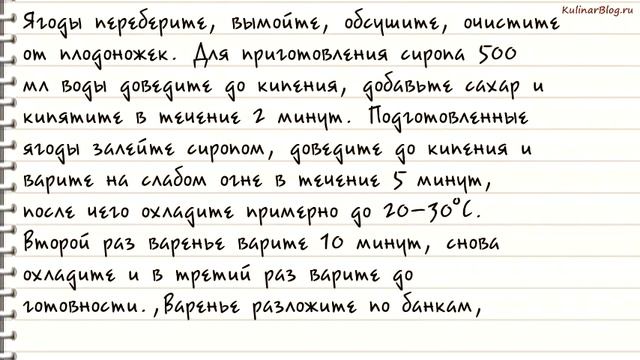 KulinarBlog.ru
Ягоды переберите, вымойте, обсушите, очистите
от плодоножек. Для приготовления сиропа 500
мл воды доведите до кипения, добавьте сахар и
кипятите в течение 2 минут. Подготовленные
ягоды залейте сиропом, доведите до кипения и
варите на слабом огне в течение 5 минут,
после чего охладите примерно до 20–30°С.
Второй раз варенье варите 10 минут, снова
охладите и в третий раз варите до
готовности.,Варенье разложите по банкам,